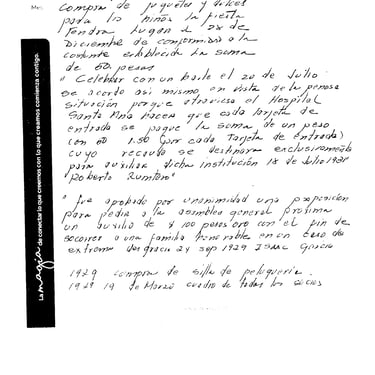 Mes:
compra de juguetes y dulces
para los niños la fiesta
Tendra lugar el 28 de
Diciembre de conformidad a la
costumbre establecida la suma
de 60 pesos
" Celebrar con un baile el 20 de Julio
se acordo asi mismo, en vista de la penosa
situación porque atraviesa el Hospital
Santa Ana hacer que cada tarjeta de
entrada se pague la suma de un peso
con 50 1.50 (por cada Tarjeta de entrada)
cuyo recaudo se destinara exclusivamente
para auxiliar dicha institución 18 de Julio 1931
"Roberto
" fue aprobado por unanimidad una proposición
para pedir a la asamblea general próxima
un auxilio de $ 100 pesos oro con el fin de
socorrer a una familia honorable en un caso de
extrema desgracia 24 sep 1929 Isaac García
1929 compra de silla de peluqueria.
1929 19 de Marzo cuadro de todos los socios
La magia de conectar lo que creemos con lo que creamos comienza contigo.